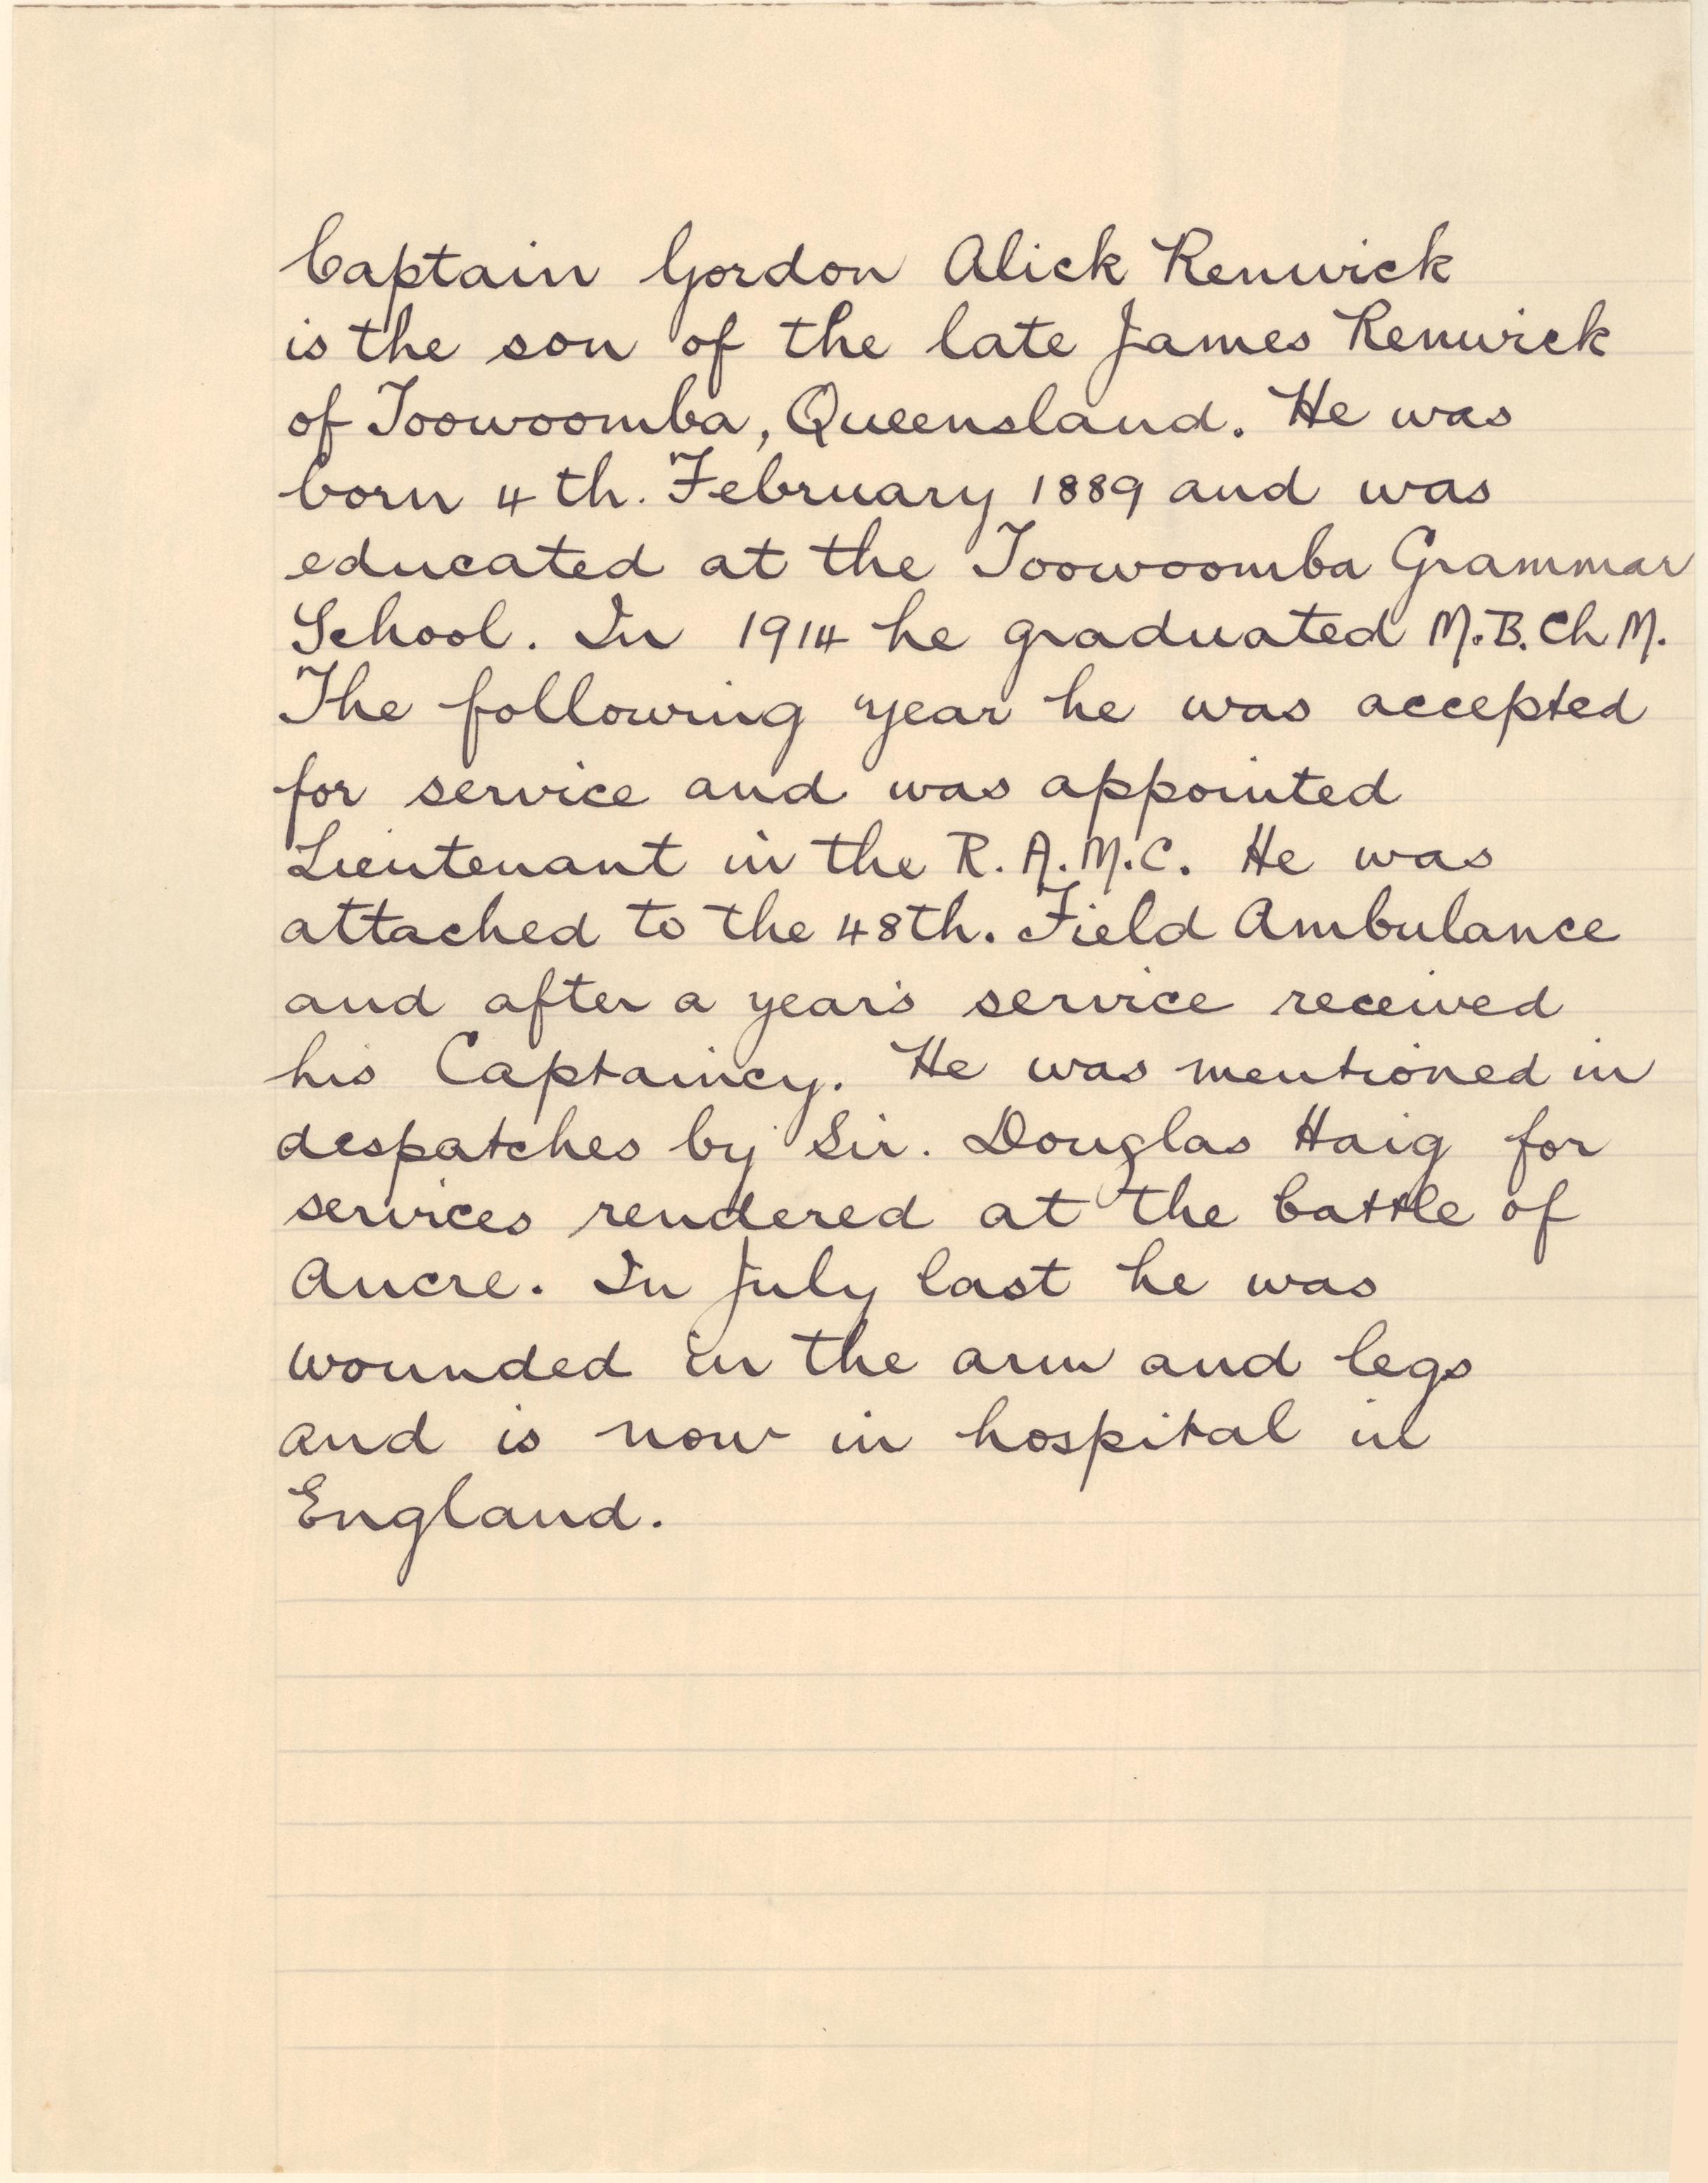 Captain Gordon Alick Renwick
is the son of the late James Renwick
of Toowoomba, Queensland. He was
born 4th. February 1889 and was
educated at the Toowoomba Grammar
School. In 1914 he graduated M.B. Ch M.
The following year he was accepted
for service and was appointed
Lieutenant in the R.A.M.C. He was
attached to the 48th. Field Ambulance
and after a year's service received
his Captaincy. He was mentioned in
despatches by Sir. Douglas Haig for
services rendered at the battle of
Ancre. In July last he was
wounded in the arm and legs
and is now in hospital in
England.